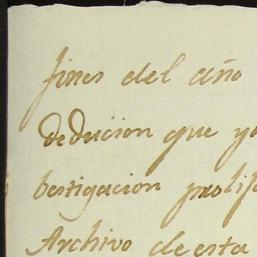 fines del año
deducion que y
bestigacion prolif
Archivo de esta